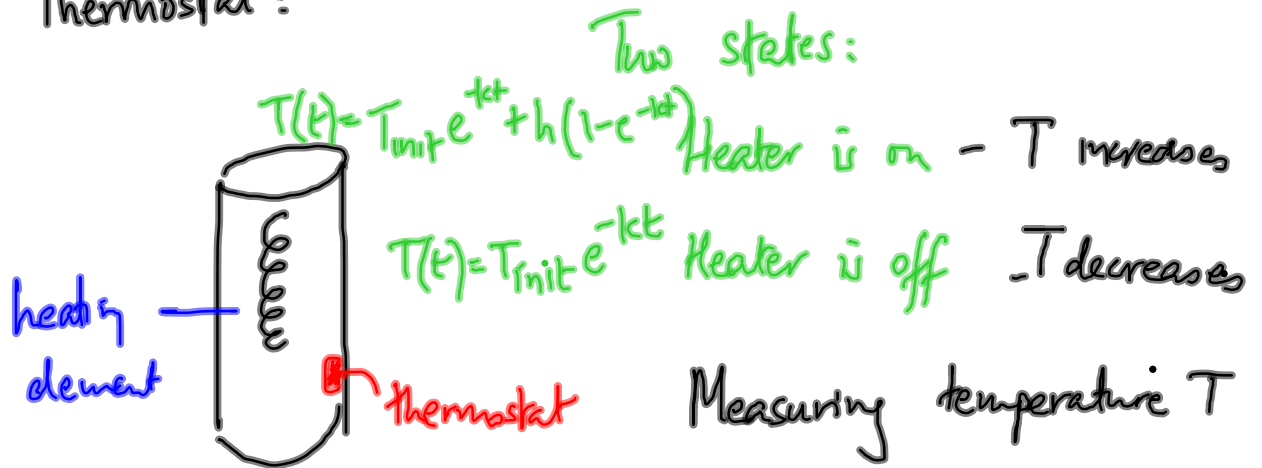 Thermostat:
Two states:
T(t)=T_init e^-kt + h(1-e^-kt) Heater is on - T increases
T(t)=T_init e^-kt Heater is off - T decreases
heating
element
thermostat
Measuring temperature T